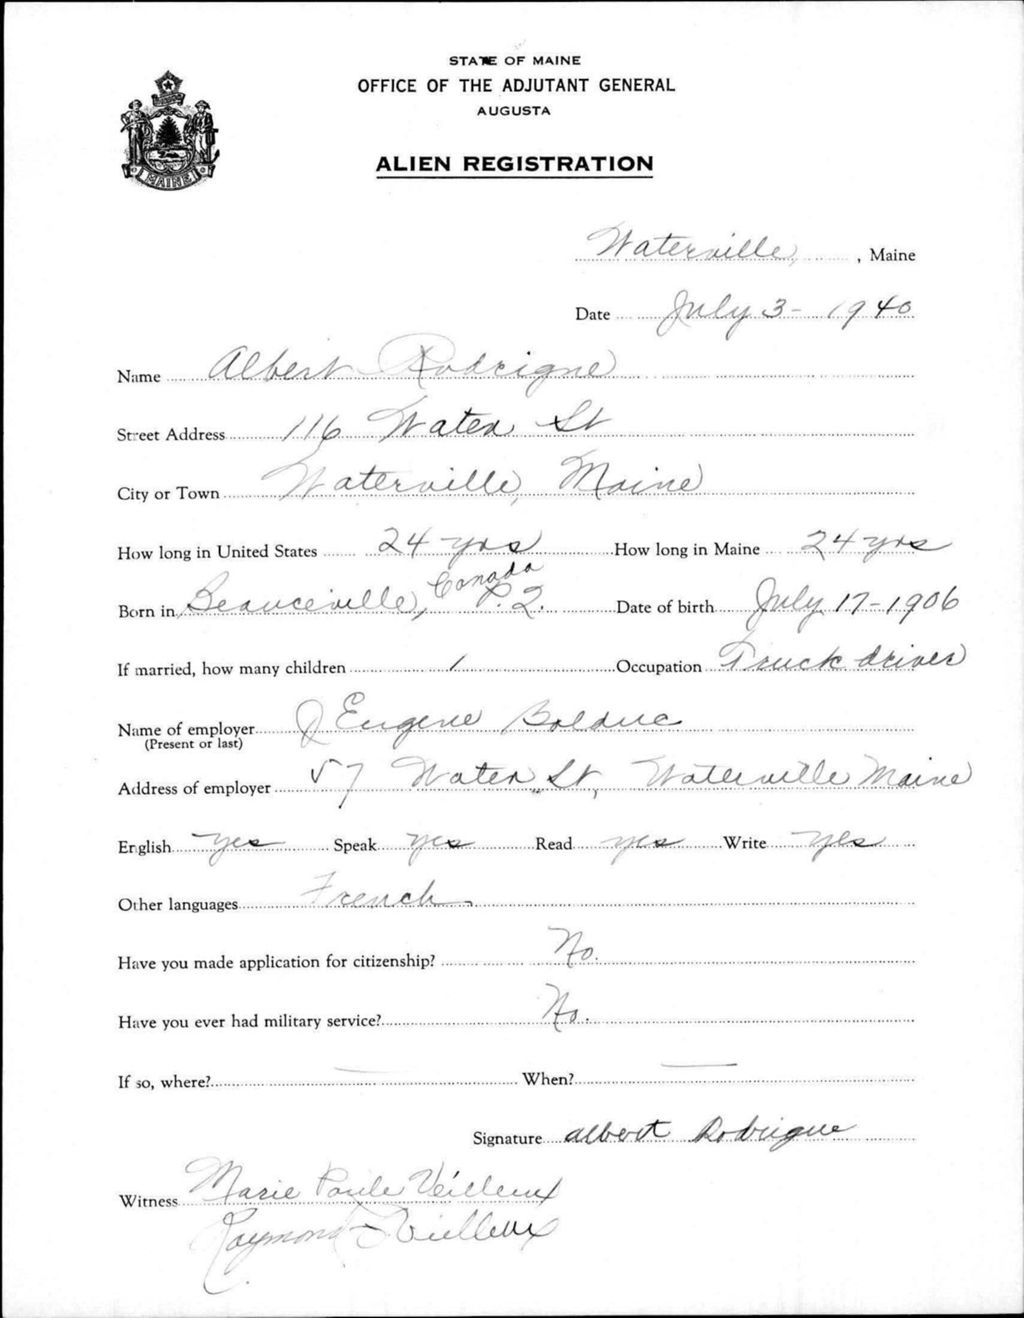 STATE OF MAINE
OFFICE OF THE ADJUTANT GENERAL
AUGUSTA
ALIEN REGISTRATION
MAINE
Waterville, , Maine
Date July 3 - 1940
Name Albert Rodrigue
Street Address 116 Water St
City or Town Waterville, Maine
How long in United States 24 yrs How long in Maine 24 yrs
Born in Beauceville, Canada P.Q. Date of birth July 17-1906
If married, how many children 1 Occupation Truck driver
Name of employer J Eugene Bolduc
(Present or last)
Address of employer 57 Water St, Waterville Maine
English yes Speak yes Read yes Write yes
Other languages French
Have you made application for citizenship? No.
Have you ever had military service? No.
If so, where? — When? —
Signature Albert Rodrigue
Witness Marie Paule Veilleux
Raymond Veilleux